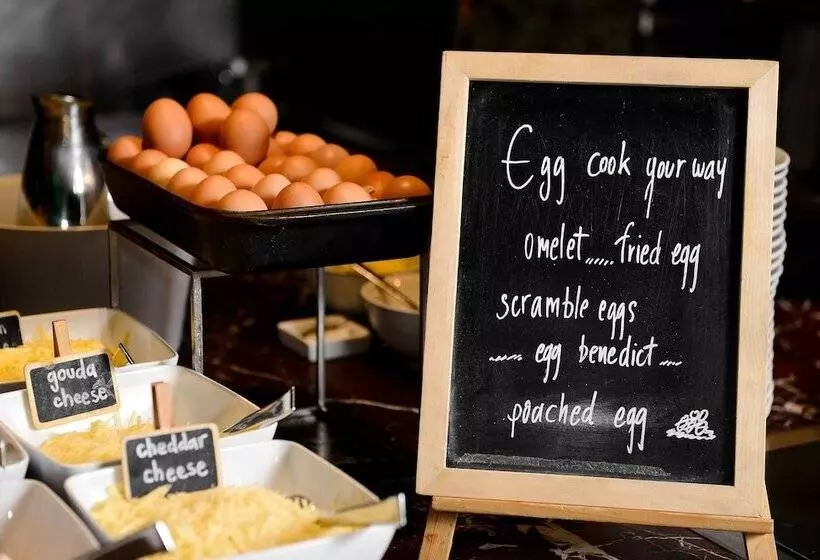 Egg cook your way
omelet,,,,,fried egg
scramble eggs
egg benedict
poached egg
gouda
cheese
cheddar
cheese